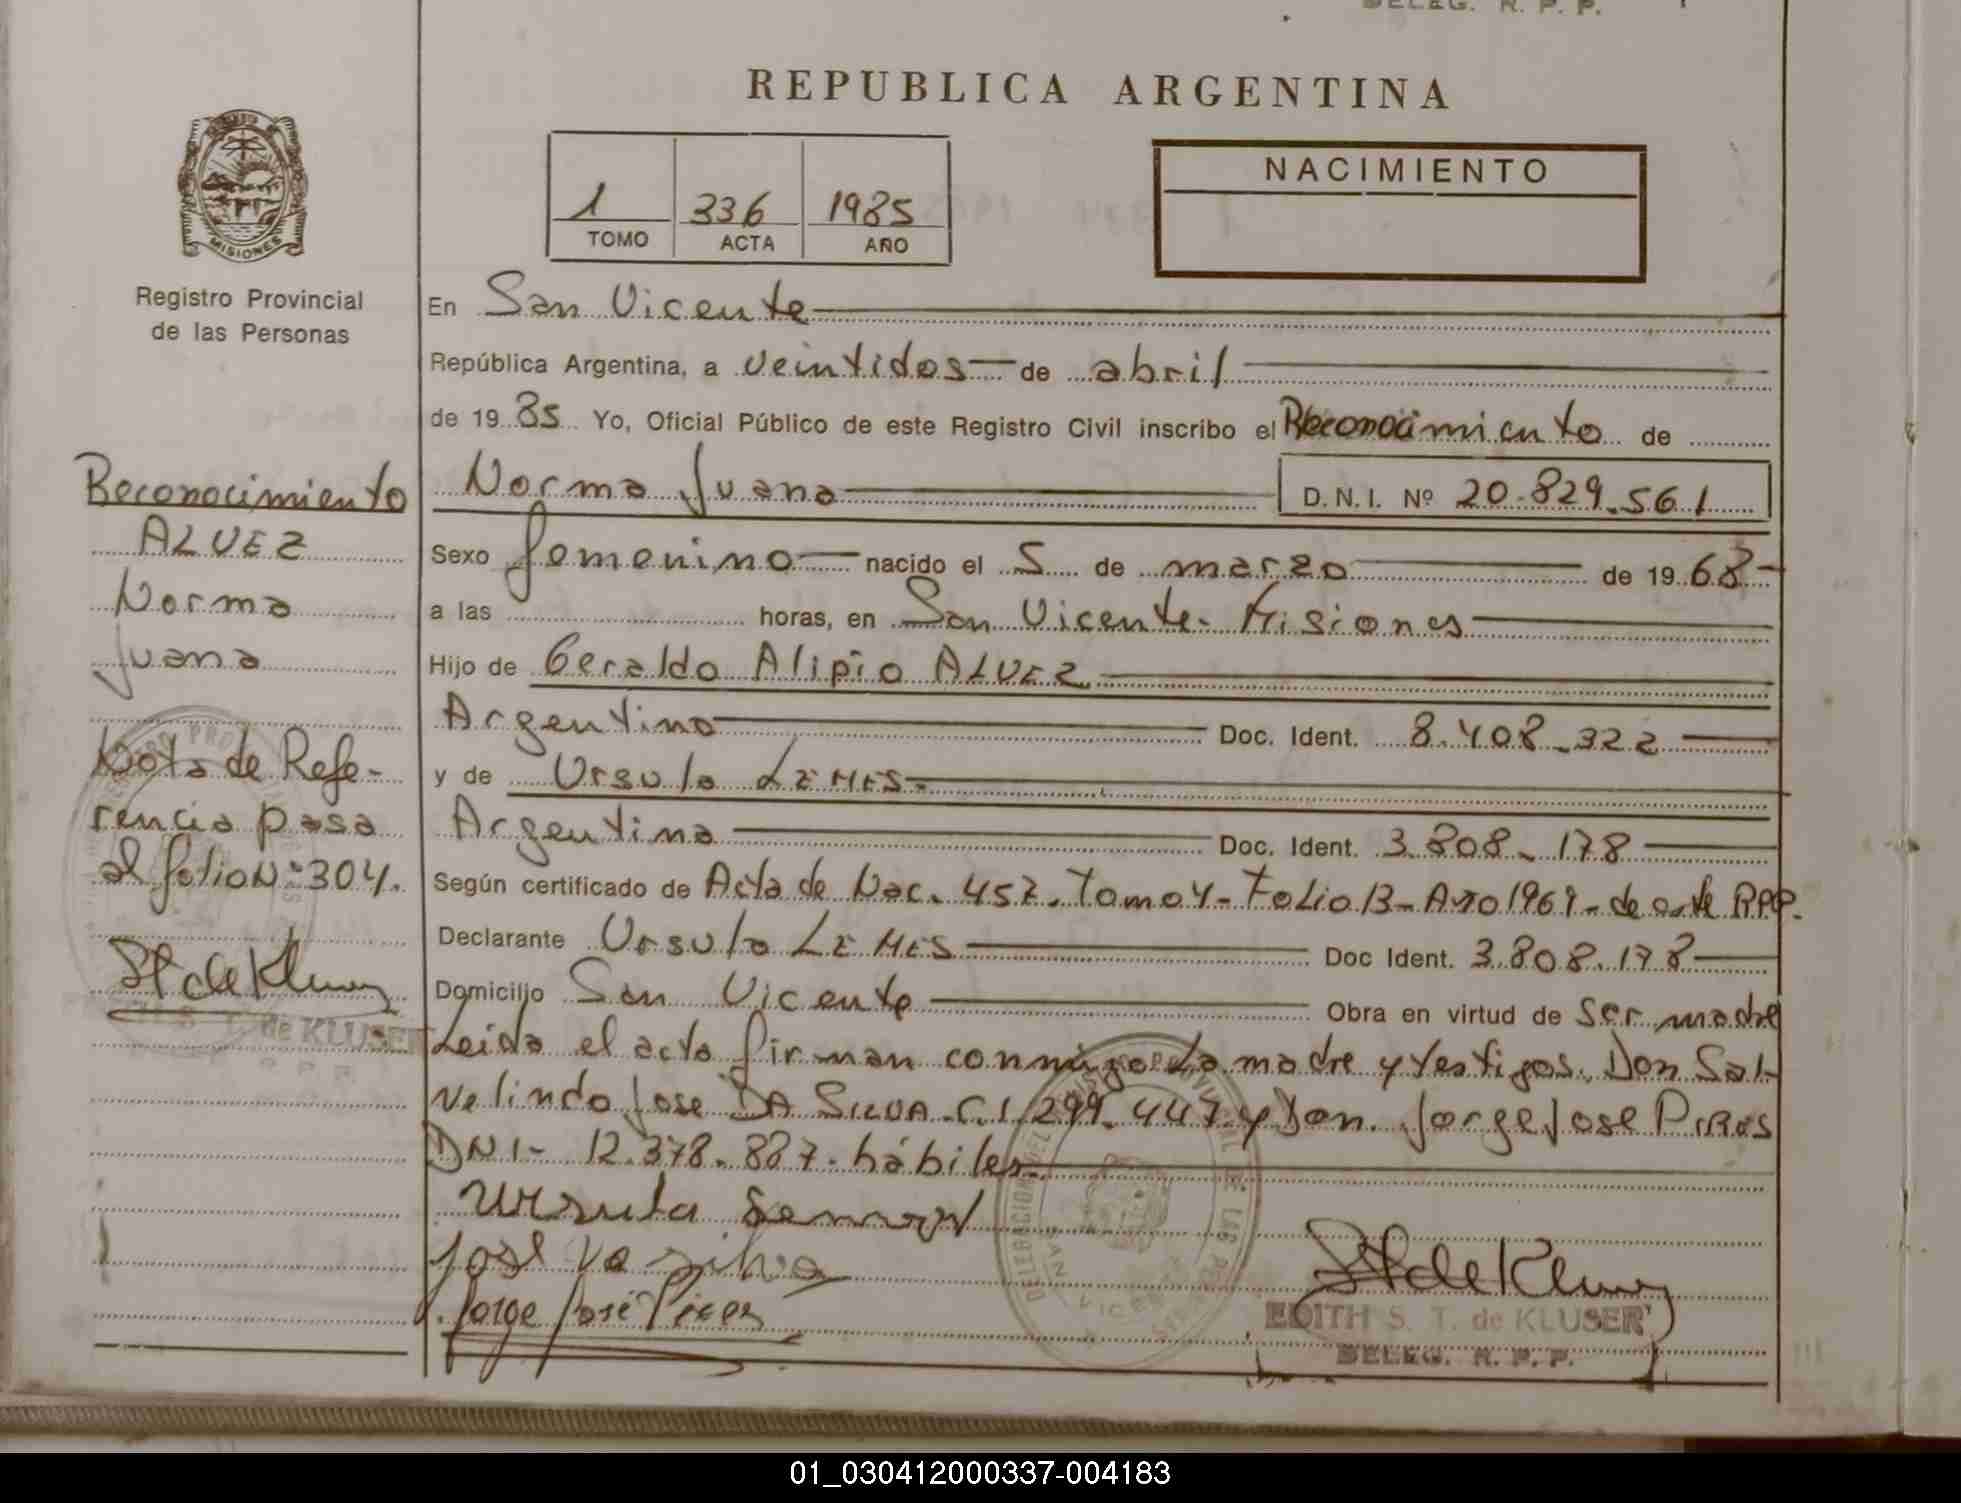 BELEG. R. P. P.
REPUBLICA ARGENTINA
MISIONES
Registro Provincial
de las Personas
1 336 1985
TOMO ACTA AÑO
NACIMIENTO
En San Vicente
República Argentina, a veintidos de abril
de 1985 Yo, Oficial Público de este Registro Civil inscribo el Reconocimiento de
Norma Juana D.N.I. Nº 20.829.561
Sexo femenino nacido el 5 de marzo de 1968
a las horas, en San Vicente - Misiones
Hijo de Geraldo Alipio ALVEZ
Argentino Doc. Ident. 8.408.322
y de Ursula LEMES
Argentina Doc. Ident. 3.808.178
Según certificado de Acta de Nac. 457. Tomo 4 - Folio 13 - Año 1969 - de este RPP.
Declarante Ursula LEMES Doc Ident. 3.808.178
Domicilio San Vicente Obra en virtud de ser madre
Leida el acta firman conmigo La madre y testigos. Don Sal-
velindo Jose DA SILVA - C.I. 299.447 y Don. Jorge Jose PIRES
DNI - 12.378.887. hábiles.
Ursula Lemes
José Da Silva
Jorge José Pires
EDITH S. T. de KLUSER
BELEG. R. P. P.
Reconocimiento
ALVEZ
Norma
Juana
Nota de Refe-
rencia pasa
al folio Nº 304.
St de Kluser
S. T. de KLUSER
R. P. P.
St de Kluser
01_030412000337-004183